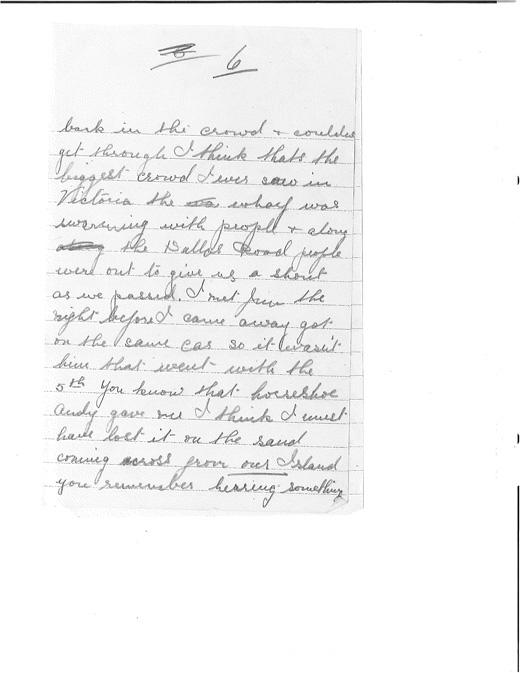 6
back in the crowd + couldn't
get through I think thats the
biggest crowd I ever saw in
Victoria the wharf was
swarming with people + along
the Dallas Road people
were out to give us a shout
as we passed. I met Jim the
night before I came away got
on the same car so it wasn't
him that went with the
5th You know that horseshoe
Andy gave me I think I must
have lost it on the sand
coming across from our Island
you remember hearing something